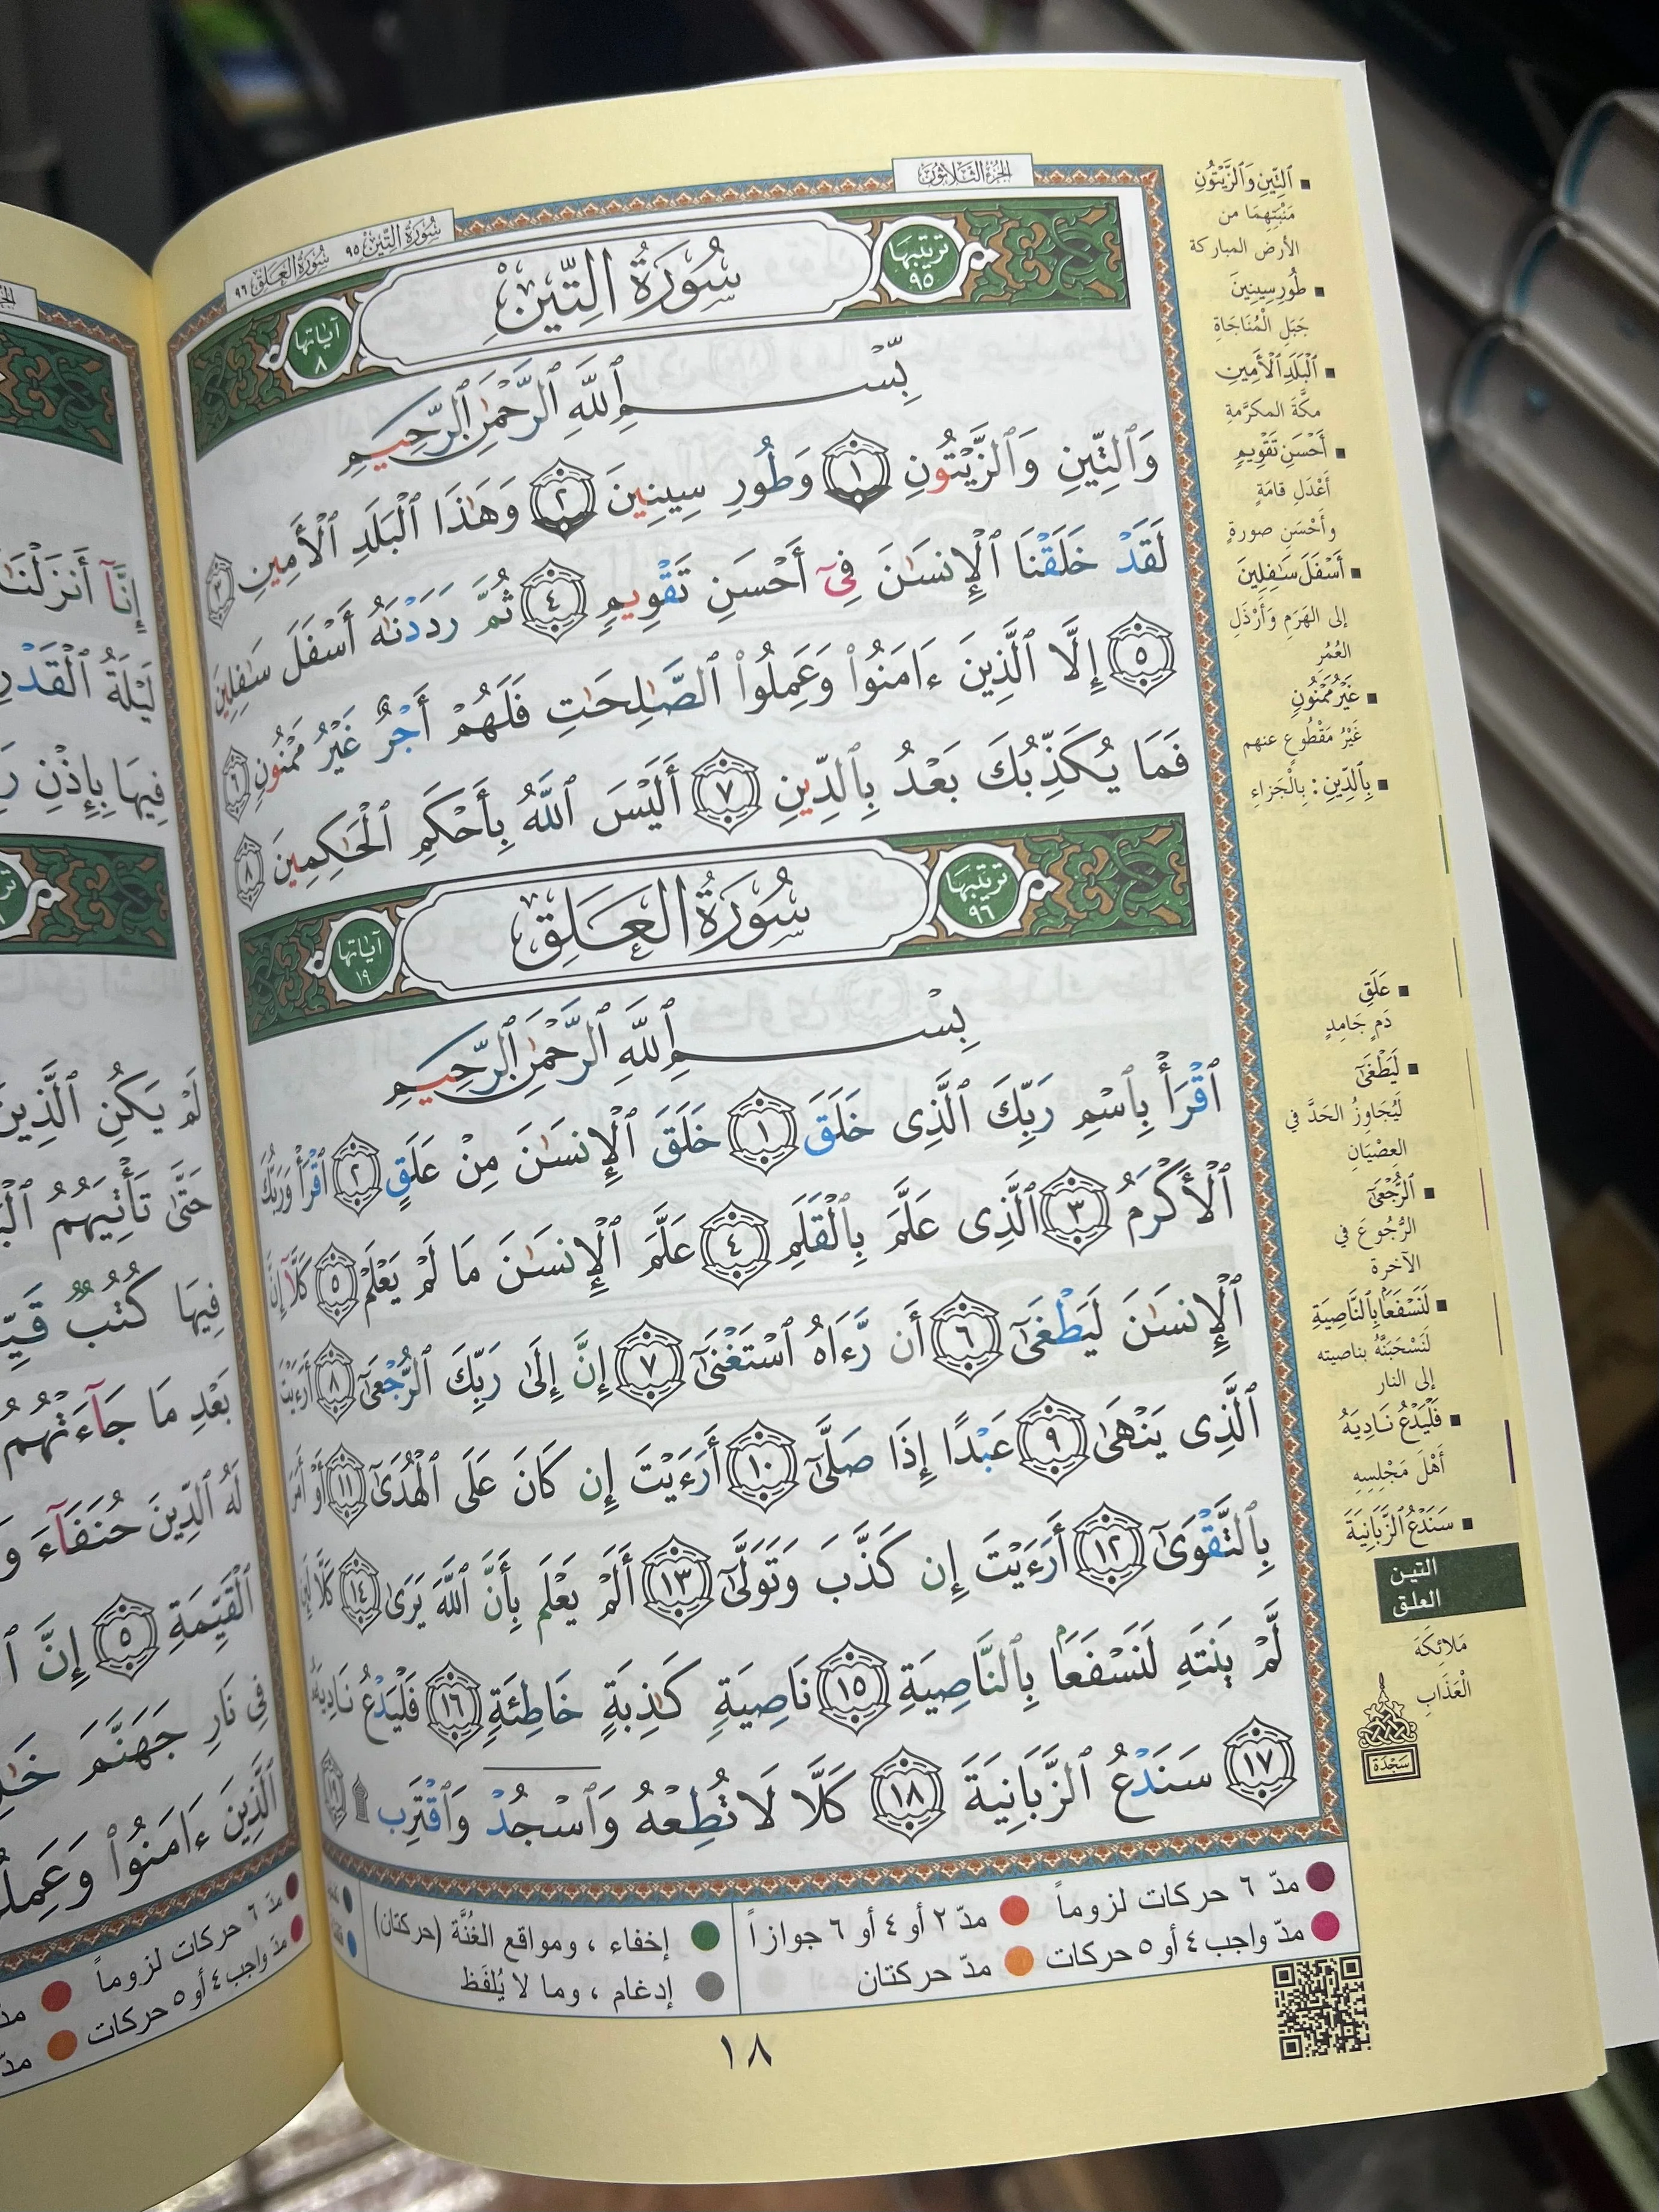 الجزء الثلاثون
سُورَةُ التِّين ٩٥ سُورَةُ العَلَق ٩٦
ترتيبها ٩٥
سُورَةُ التِّينِ
آياتها ٨
بِسْمِ ٱللَّهِ ٱلرَّحْمَٰنِ ٱلرَّحِيمِ
وَٱلتِّينِ وَٱلزَّيْتُونِ ١ وَطُورِ سِينِينَ ٢ وَهَٰذَا ٱلْبَلَدِ ٱلْأَمِينِ ٣
لَقَدْ خَلَقْنَا ٱلْإِنسَٰنَ فِىٓ أَحْسَنِ تَقْوِيمٍ ٤ ثُمَّ رَدَدْنَٰهُ أَسْفَلَ سَٰفِلِينَ
٥ إِلَّا ٱلَّذِينَ ءَامَنُوا۟ وَعَمِلُوا۟ ٱلصَّٰلِحَٰتِ فَلَهُمْ أَجْرٌ غَيْرُ مَمْنُونٍ ٦
فَمَا يُكَذِّبُكَ بَعْدُ بِٱلدِّينِ ٧ أَلَيْسَ ٱللَّهُ بِأَحْكَمِ ٱلْحَٰكِمِينَ ٨
ترتيبها ٩٦
سُورَةُ العَلَقِ
آياتها ١٩
بِسْمِ ٱللَّهِ ٱلرَّحْمَٰنِ ٱلرَّحِيمِ
ٱقْرَأْ بِٱسْمِ رَبِّكَ ٱلَّذِى خَلَقَ ١ خَلَقَ ٱلْإِنسَٰنَ مِنْ عَلَقٍ ٢ ٱقْرَأْ وَرَبُّكَ
ٱلْأَكْرَمُ ٣ ٱلَّذِى عَلَّمَ بِٱلْقَلَمِ ٤ عَلَّمَ ٱلْإِنسَٰنَ مَا لَمْ يَعْلَمْ ٥ كَلَّآ إِنَّ
ٱلْإِنسَٰنَ لَيَطْغَىٰٓ ٦ أَن رَّءَاهُ ٱسْتَغْنَىٰٓ ٧ إِنَّ إِلَىٰ رَبِّكَ ٱلرُّجْعَىٰٓ ٨ أَرَءَيْتَ
ٱلَّذِى يَنْهَىٰ ٩ عَبْدًا إِذَا صَلَّىٰٓ ١٠ أَرَءَيْتَ إِن كَانَ عَلَى ٱلْهُدَىٰٓ ١١ أَوْ أَمَرَ
بِٱلتَّقْوَىٰٓ ١٢ أَرَءَيْتَ إِن كَذَّبَ وَتَوَلَّىٰٓ ١٣ أَلَمْ يَعْلَم بِأَنَّ ٱللَّهَ يَرَىٰ ١٤ كَلَّا لَئِن
لَّمْ يَنتَهِ لَنَسْفَعًۢا بِٱلنَّاصِيَةِ ١٥ نَاصِيَةٍ كَٰذِبَةٍ خَاطِئَةٍ ١٦ فَلْيَدْعُ نَادِيَهُۥ
١٧ سَنَدْعُ ٱلزَّبَانِيَةَ ١٨ كَلَّا لَا تُطِعْهُ وَٱسْجُدْ وَٱقْتَرِب ۩ ١٩
ٱلتِّينِ وَٱلزَّيْتُونِ
مَنْبَتِهِمَا من
الأرض المباركة
طُورِ سِينِينَ
جَبَلِ الْمُنَاجَاةِ
ٱلْبَلَدِ ٱلْأَمِينِ
مكَّةَ المكرَّمةِ
أَحْسَنِ تَقْوِيمٍ
أَعْدَلِ قامَةٍ
وأَحْسَنِ صورةٍ
أَسْفَلَ سَٰفِلِينَ
إلى الهَرَمِ وَأَرْذَلِ
العُمُرِ
غَيْرُ مَمْنُونٍ
غَيْرُ مَقْطُوعٍ عنهم
بِٱلدِّينِ : بِالْجَزاءِ
عَلَقٍ
دَمٍ جَامِدٍ
لَيَطْغَىٰٓ
لَيُجَاوِزُ الحَدَّ في
العِصْيَانِ
ٱلرُّجْعَىٰٓ
الرُّجُوعَ في
الآخرة
لَنَسْفَعًۢا بِٱلنَّاصِيَةِ
لَنَسْحَبَنَّهُ بناصيته
إلى النار
فَلْيَدْعُ نَادِيَهُ
أَهْلَ مَجْلِسِهِ
سَنَدْعُ ٱلزَّبَانِيَةَ
التين
العلق
مَلائِكَةَ
الْعَذَابِ
سَجْدَة
مدّ ٦ حركات لزوماً
مدّ ٢ أو ٤ أو ٦ جوازاً
مدّ واجب ٤ أو ٥ حركات
مدّ حركتان
إخفاء ، ومواقع الغُنَّة (حركتان)
إدغام ، وما لا يُلفَظ
١٨
إِنَّآ أَنزَلْنَٰ
لَيْلَةُ ٱلْقَدْرِ
فِيهَا بِإِذْنِ
لَمْ يَكُنِ ٱلَّذِينَ
حَتَّىٰ تَأْتِيَهُمُ
فِيهَا كُتُبٌ
بَعْدِ مَا جَآءَتْهُمُ
لَهُ ٱلدِّينَ حُنَفَآءَ
ٱلْقَيِّمَةِ ٥ إِنَّ
فِى نَارِ جَهَنَّمَ
ٱلَّذِينَ ءَامَنُوا۟
مدّ ٦ حركات لزوماً
مدّ واجب ٤ أو ٥ حركات